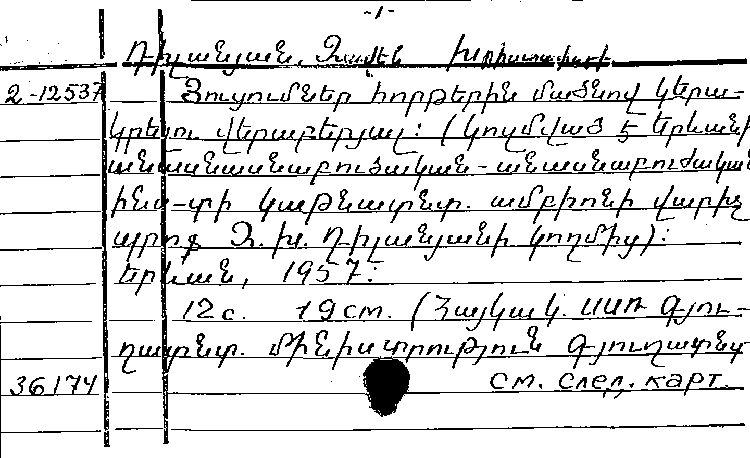 -1-
Դիլանյան, Զավեն Խրիստափորի
2-12537 Ցուցումներ հորթերին մածնով կերա-
կրելու վերաբերյալ: (Կազմված է Երևանի
անասնաբուծական-անասնաբուժական
ինստ-տի կաթնատնտ. ամբիոնի վարիչ
պրոֆ. Զ. Խ. Դիլանյանի կողմից):
Երևան, 1957:
12с. 19см. (Հայկակ. ՍՍՌ Գյու-
ղատնտ. մինիստրություն Գյուղատնտ
36174 см. след. карт.